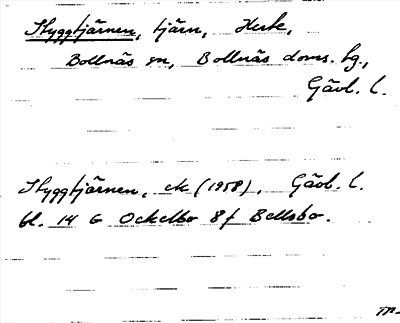 Styggtjärnen, tjärn, Herk,
Bollnäs sn, Bollnäs doms. hg.,
Gävl. l.
Styggtjärnen, ek (1958), Gävl. l.
bl. 14 G Ockelbo 8f Bellsbo.